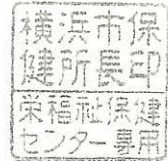 横浜市保
健所長印
栄福祉保健
センター専用